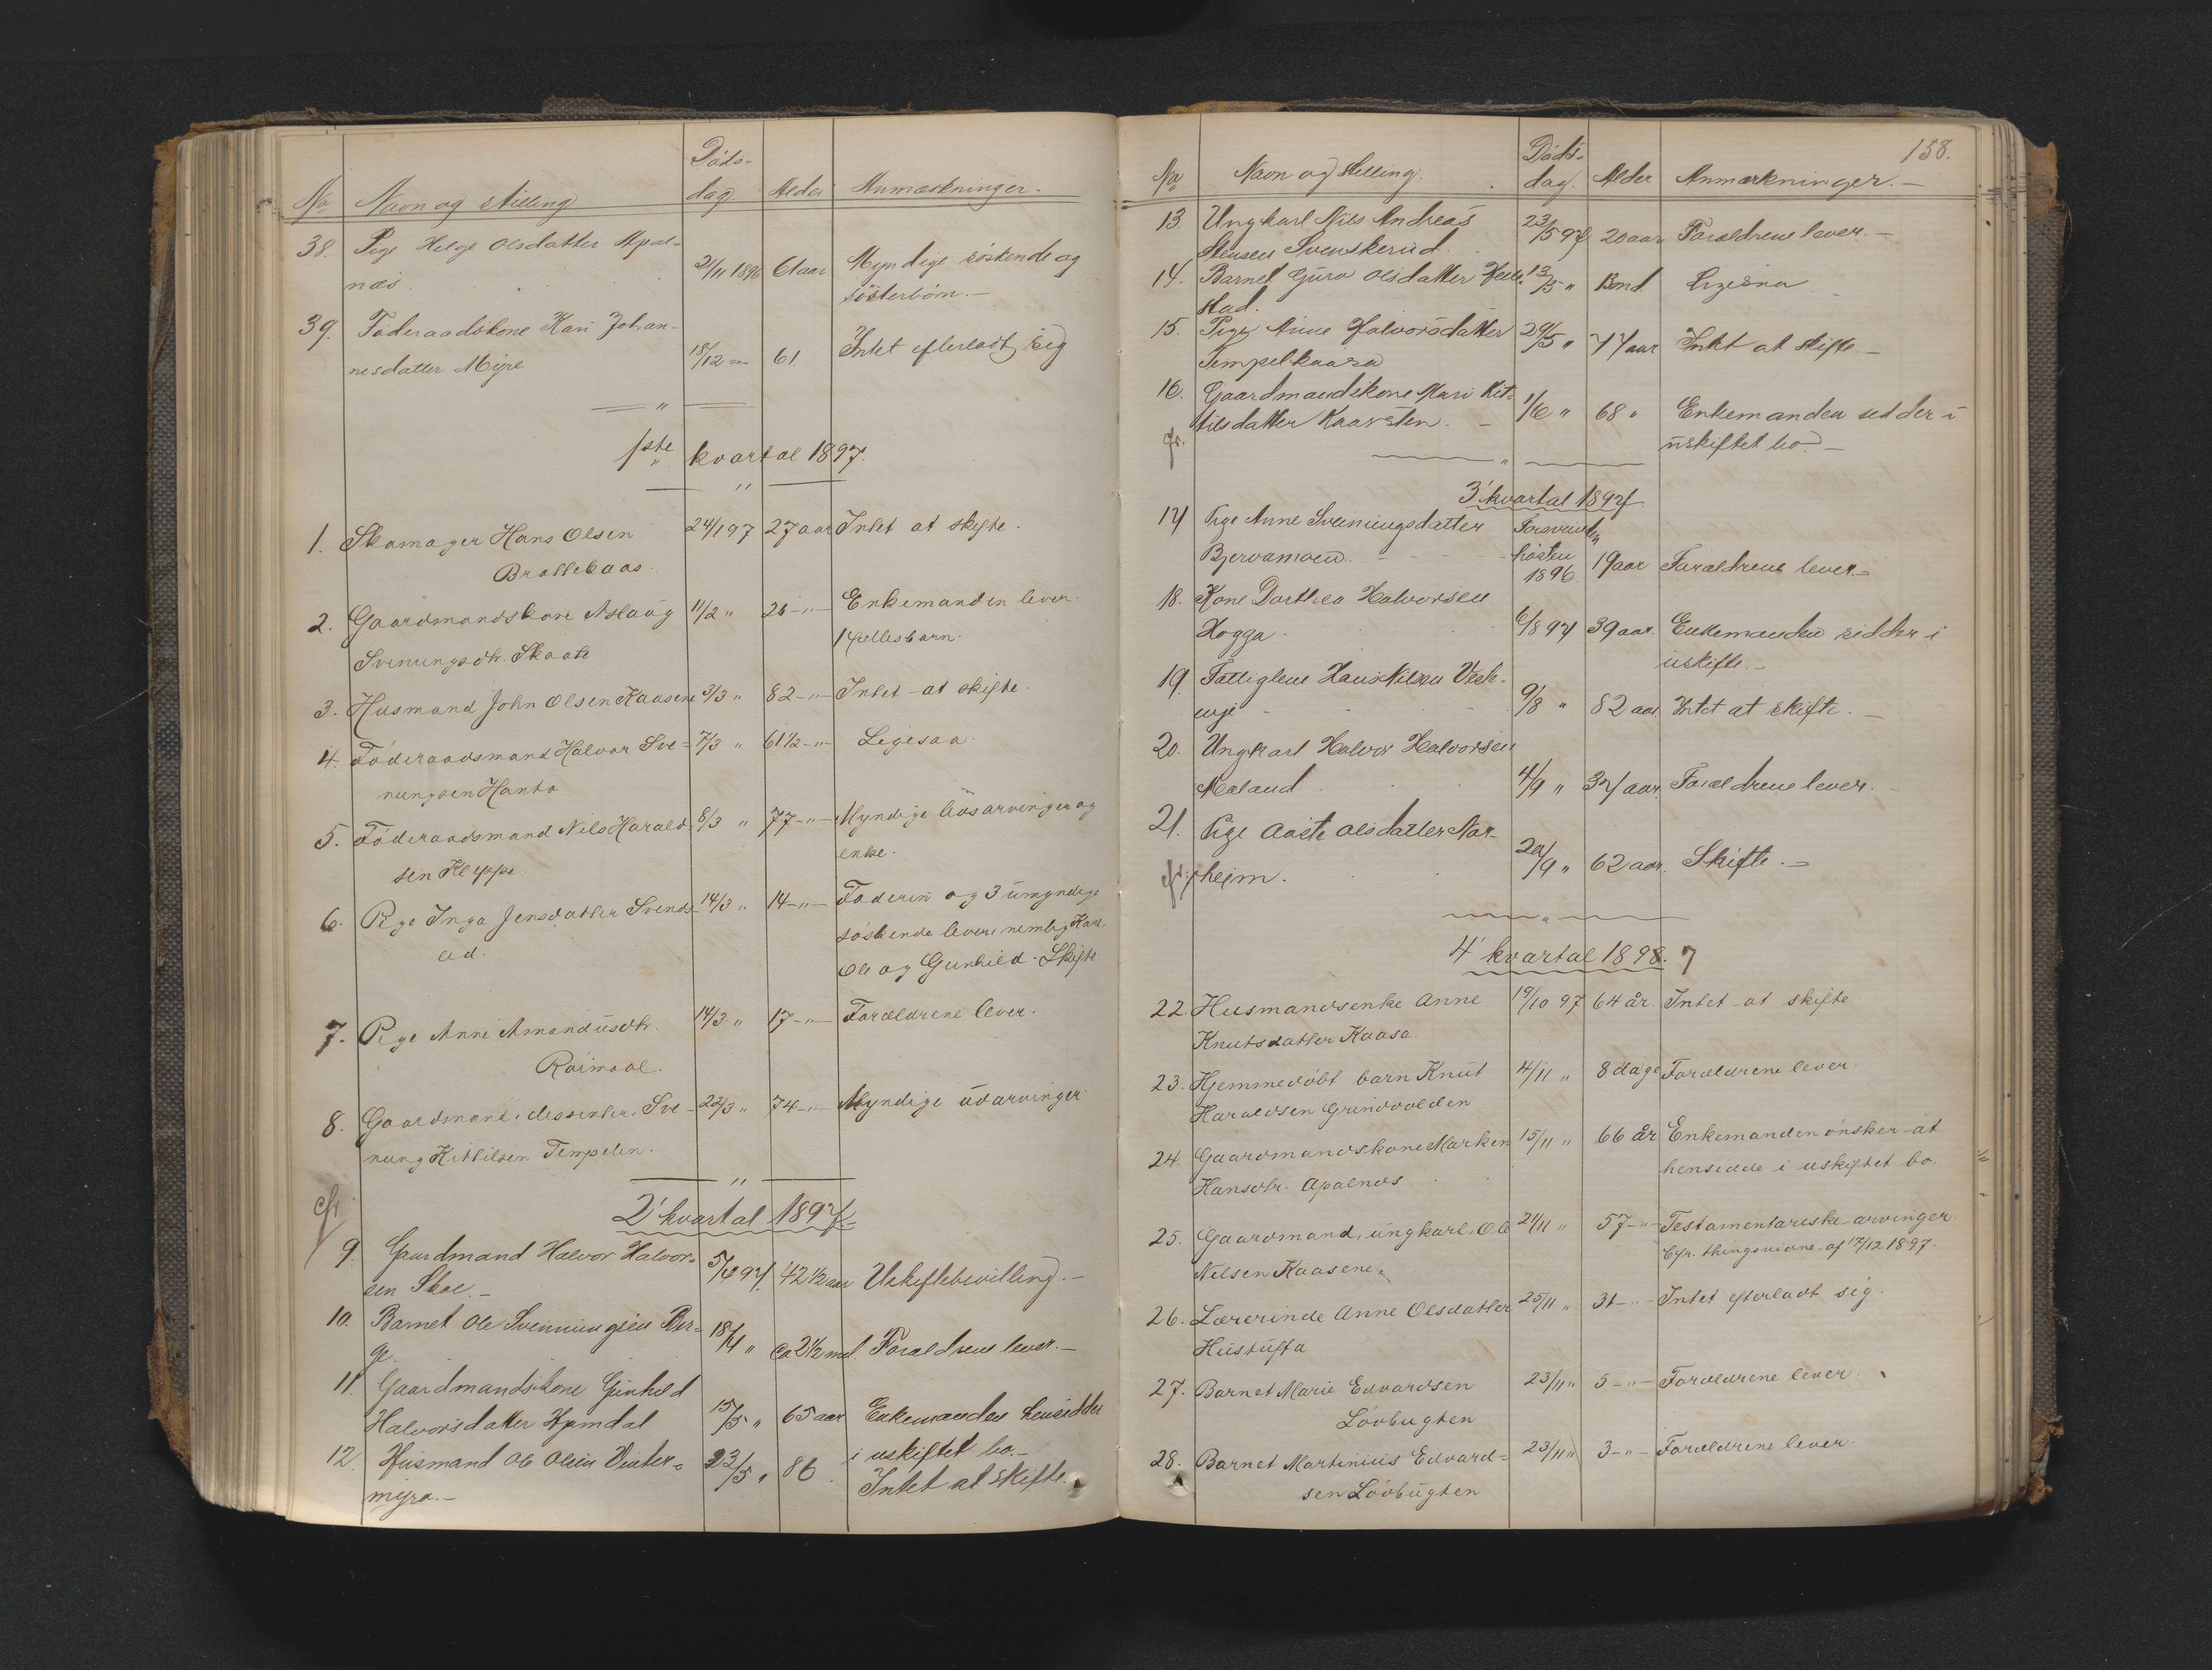 Döds-
No Navn og stilling dag. Alder Anmærkninger.
38. Pige Helge Olsdatter Apal-
næs. 21/11 1896 61 aar Myndige söskende og
söskterbörn.—
39. Föderaadskone Kari Johan-
nesdatter Myre 18/12 — 61. Intet efterladt sig
1ste kvartal 1897.
1. Skomager Hans Olsen 24/1 97 27 aar Intet at skifte.
Brattebaas.
2. Gaardmandskone Aslaug 11/2 " 26 -"- Enkemanden lever.
Svenungsdtr. Skaate 1 fellesbarn.
3. Husmand John Olsen Kaasene 3/3 " 82 -"- Intet at skifte.
4. Föderaadsmand Halvor Sve- 7/3 " 61 1/2 -"- Ligesaa.
nungsen Hanto
5. Föderaadsmand Nils Harald- 8/3 " 77 -"- Myndige livsarvinger og
sen Kleppe. enke.
6. Pige Inga Jensdatter Svends- 14/3 " 14 -"- Faderen og 3 umyndige
eid. söskende lever, nemlig Kari,
Ole og Gunhild. Skifte
7. Pige Anne Amandusdtr. 14/3 " 17 -"- Foreldrene lever.
Roimaal.
8. Gaardmand, dissenter, Sve- 22/3 " 74 -"- Myndige udarvinger
nung Kittilsen Tempelen.
cfr
2' kvartal 1897.
9. Gaardmand Halvor Halvor- 5/4 97. 42 1/2 aar Uskiftebevilling.—
sen Skoe.—
10. Barnet Ole Svenningsen Ber- 18/4 " ca 2 1/2 md. Forældrene lever.—
ge.
11. Gaardmandskone Gunhild
Halvorsdatter Hjemdal 15/5 " 65 aar Enkemanden hensidder
i uskiftet bo.—
12. Husmand Ole Olsen Vinter- 23/5 " 86. Intet at skifte.
myra.—
158.
Döds-
No Navn og stilling. dag. Alder Anmærkninger.—
13. Ungkarl Nils Andreas 23/5 97 20 aar Forældrene lever.—
Stensen Svenskerud.
14. Barnet Guro Olsdatter 13/5 " 13 md. Ligesaa
stad.
15. Pige Anne Halvorsdatter 29/5 " 77 aar Intet at skifte.—
Tempelkaasa
16. Gaardmandskone Mari Kit- 1/6 " 68 " Enkemanden sidder i
tilsdatter Kaasten.— uskiftet bo.—
cfr.
3' kvartal 1897
17 Pige Anne Svenningsdatter Forsvundn
Bjervamoen. hösten
1896 19 aar Forældrene lever.—
18. Kone Dorthea Halvorsen
Hogga. 6/8 97 39 aar. Enkemanden sidder i
uskifte.—
19. Fattiglem Hans Nilsen Vesle-
enge 9/8 " 82 aar Intet at skifte.—
20. Ungkarl Halvor Halvorsen
Mæland 4/9 " 37 aar. Forældrene lever.
21. Pige Aaste Olsdatter Nor-
cfr. heim. 20/9 " 62 aar. Skifte.—
4' kvartal 1898. 7
22. Husmandsenke Anne 19/10 97 64 år. Intet at skifte
Knutsdatter Kaasa.
23. Hjemmedöbt barn Knut 4/11 " 8 dage Forældrene lever.
Haraldsen Grindvolden
24. Gaardmandskone Marken 15/11 " 66 år Enkemanden önsker at
Hansdtr. Apalnæs hensidde i uskiftet bo.
25. Gaardmand, ungkarl, Ole 21/11 " 57 -"- Testamentariske arvinger
Nilsen Kaasene. Cfr. thingsvidne af 17/12 1897.
26. Lærerinde Anne Olsdatter 25/11 " 31 -"- Intet efterladt sig.
Hustufta
27. Barnet Marie Edvardsen 23/11 " 5 -"- Forældrene lever.
Lövbugten
28. Barnet Martinius Edvard- 23/11 " 3 -"- Forældrene lever
sen Lövbugten